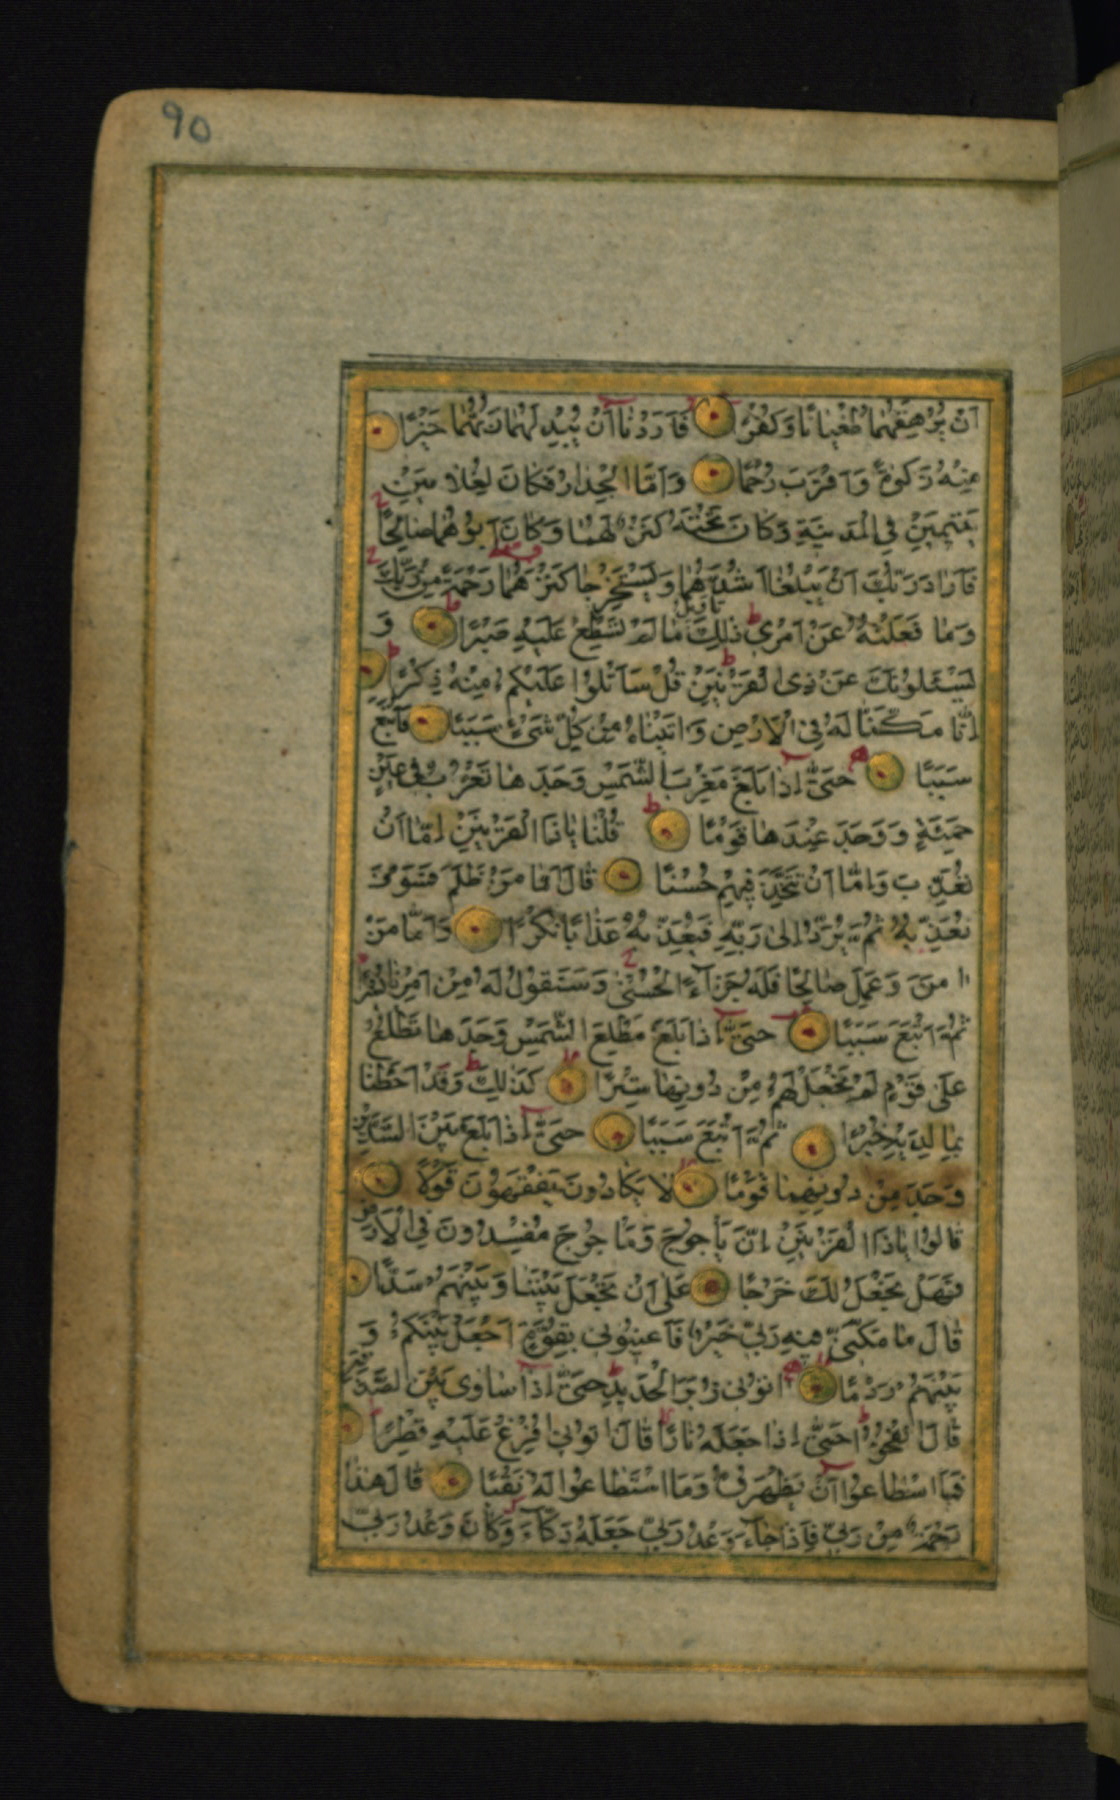 90
اَنْ يُرْهِقَهُمَا طُغْيَانًا وَكُفْرًا فَاَرَدْنَا اَنْ يُبْدِلَهُمَا رَبُّهُمَا خَيْرًا
مِنْهُ زَكٰوةً وَاَقْرَبَ رُحْمًا وَاَمَّا الْجِدَارُ فَكَانَ لِغُلَامَيْنِ
يَتِيمَيْنِ فِي الْمَدِينَةِ وَكَانَ تَحْتَهُ كَنْزٌ لَهُمَا وَكَانَ اَبُوهُمَا صَالِحًا
فَاَرَادَ رَبُّكَ اَنْ يَبْلُغَا اَشُدَّهُمَا وَيَسْتَخْرِجَا كَنْزَهُمَا رَحْمَةً مِنْ رَبِّكَ
وَمَا فَعَلْتُهُ عَنْ اَمْرِي ذٰلِكَ تَاْوِيلُ مَا لَمْ تَسْطِعْ عَلَيْهِ صَبْرًا وَ
يَسْئَلُونَكَ عَنْ ذِي الْقَرْنَيْنِ قُلْ سَاَتْلُوا عَلَيْكُمْ مِنْهُ ذِكْرًا
اِنَّا مَكَّنَّا لَهُ فِي الْاَرْضِ وَاٰتَيْنَاهُ مِنْ كُلِّ شَيْءٍ سَبَبًا فَاَتْبَعَ
سَبَبًا حَتّٰى اِذَا بَلَغَ مَغْرِبَ الشَّمْسِ وَجَدَهَا تَغْرُبُ فِي عَيْنٍ
حَمِئَةٍ وَوَجَدَ عِنْدَهَا قَوْمًا قُلْنَا يَاذَا الْقَرْنَيْنِ اِمَّا اَنْ
تُعَذِّبَ وَاِمَّا اَنْ تَتَّخِذَ فِيهِمْ حُسْنًا قَالَ اَمَّا مَنْ ظَلَمَ فَسَوْفَ
نُعَذِّبُهُ ثُمَّ يُرَدُّ اِلٰى رَبِّهِ فَيُعَذِّبُهُ عَذَابًا نُكْرًا وَاَمَّا مَنْ
اٰمَنَ وَعَمِلَ صَالِحًا فَلَهُ جَزَآءً الْحُسْنٰى وَسَنَقُولُ لَهُ مِنْ اَمْرِنَا يُسْرًا
ثُمَّ اَتْبَعَ سَبَبًا حَتّٰى اِذَا بَلَغَ مَطْلِعَ الشَّمْسِ وَجَدَهَا تَطْلُعُ
عَلٰى قَوْمٍ لَمْ نَجْعَلْ لَهُمْ مِنْ دُونِهَا سِتْرًا كَذٰلِكَ وَقَدْ اَحَطْنَا
بِمَا لَدَيْهِ خُبْرًا ثُمَّ اَتْبَعَ سَبَبًا حَتّٰى اِذَا بَلَغَ بَيْنَ السَّدَّيْنِ
وَجَدَ مِنْ دُونِهِمَا قَوْمًا لَا يَكَادُونَ يَفْقَهُونَ قَوْلًا
قَالُوا يَاذَا الْقَرْنَيْنِ اِنَّ يَأْجُوجَ وَمَاجُوجَ مُفْسِدُونَ فِي الْاَرْضِ
فَهَلْ نَجْعَلُ لَكَ خَرْجًا عَلٰى اَنْ تَجْعَلَ بَيْنَنَا وَبَيْنَهُمْ سَدًّا
قَالَ مَا مَكَّنِّي فِيهِ رَبِّي خَيْرٌ فَاَعِينُونِي بِقُوَّةٍ اَجْعَلْ بَيْنَكُمْ وَ
بَيْنَهُمْ رَدْمًا اٰتُونِي زُبَرَ الْحَدِيدِ حَتّٰى اِذَا سَاوٰى بَيْنَ الصَّدَفَيْنِ
قَالَ انْفُخُوا حَتّٰى اِذَا جَعَلَهُ نَارًا قَالَ اٰتُونِي اُفْرِغْ عَلَيْهِ قِطْرًا
فَمَا اسْطَاعُوا اَنْ يَظْهَرُوهُ وَمَا اسْتَطَاعُوا لَهُ نَقْبًا قَالَ هٰذَا
رَحْمَةٌ مِنْ رَبِّي فَاِذَا جَآءَ وَعْدُ رَبِّي جَعَلَهُ دَكَّآءَ وَكَانَ وَعْدُ رَبِّي